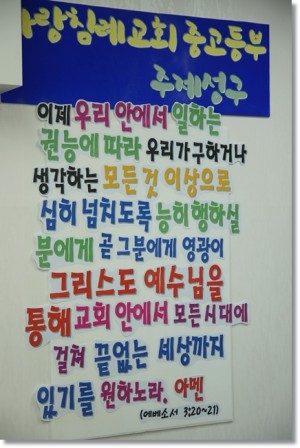 사랑침례교회 중고등부
주제성구
이제 우리 안에서 일하는
권능에 따라 우리가 구하거나
생각하는 모든 것 이상으로
심히 넘치도록 능히 행하실
분에게 곧 그분에게 영광이
그리스도 예수님을
통해 교회 안에서 모든 시대에
걸쳐 끝없는 세상까지
있기를 원하노라. 아멘
(에베소서 3:20~21)